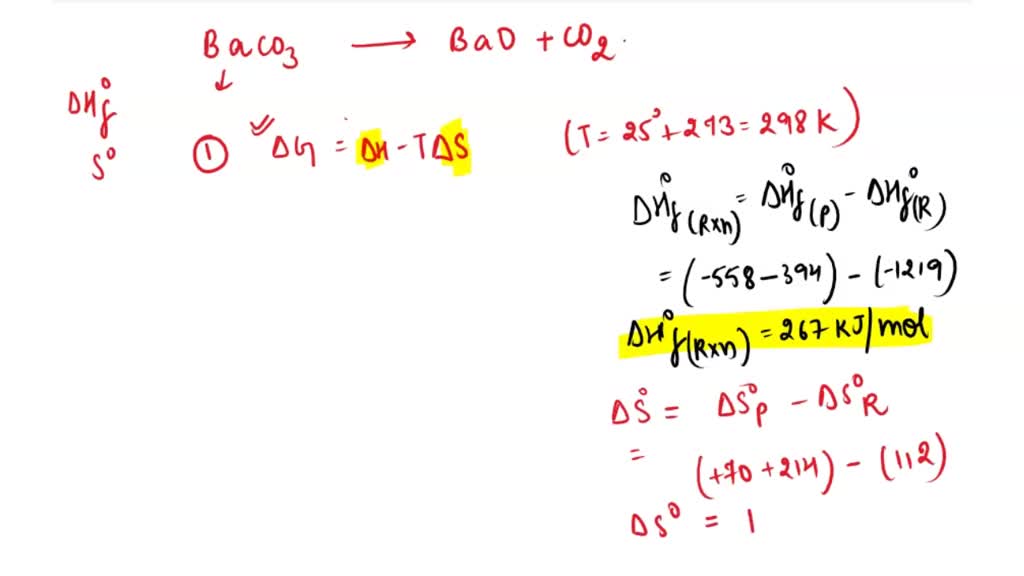 BaCO3 → BaO + CO2
ΔHf°
S°
① ΔG = ΔH - TΔS
(T = 25° + 273 = 298 K)
ΔH°f(Rxn) = ΔH°f(P) - ΔH°f(R)
= (-558 - 394) - (-1219)
ΔH°f(Rxn) = 267 KJ/mol
ΔS° = ΔS°P - ΔS°R
= (+70 + 214) - (112)
ΔS° = 1